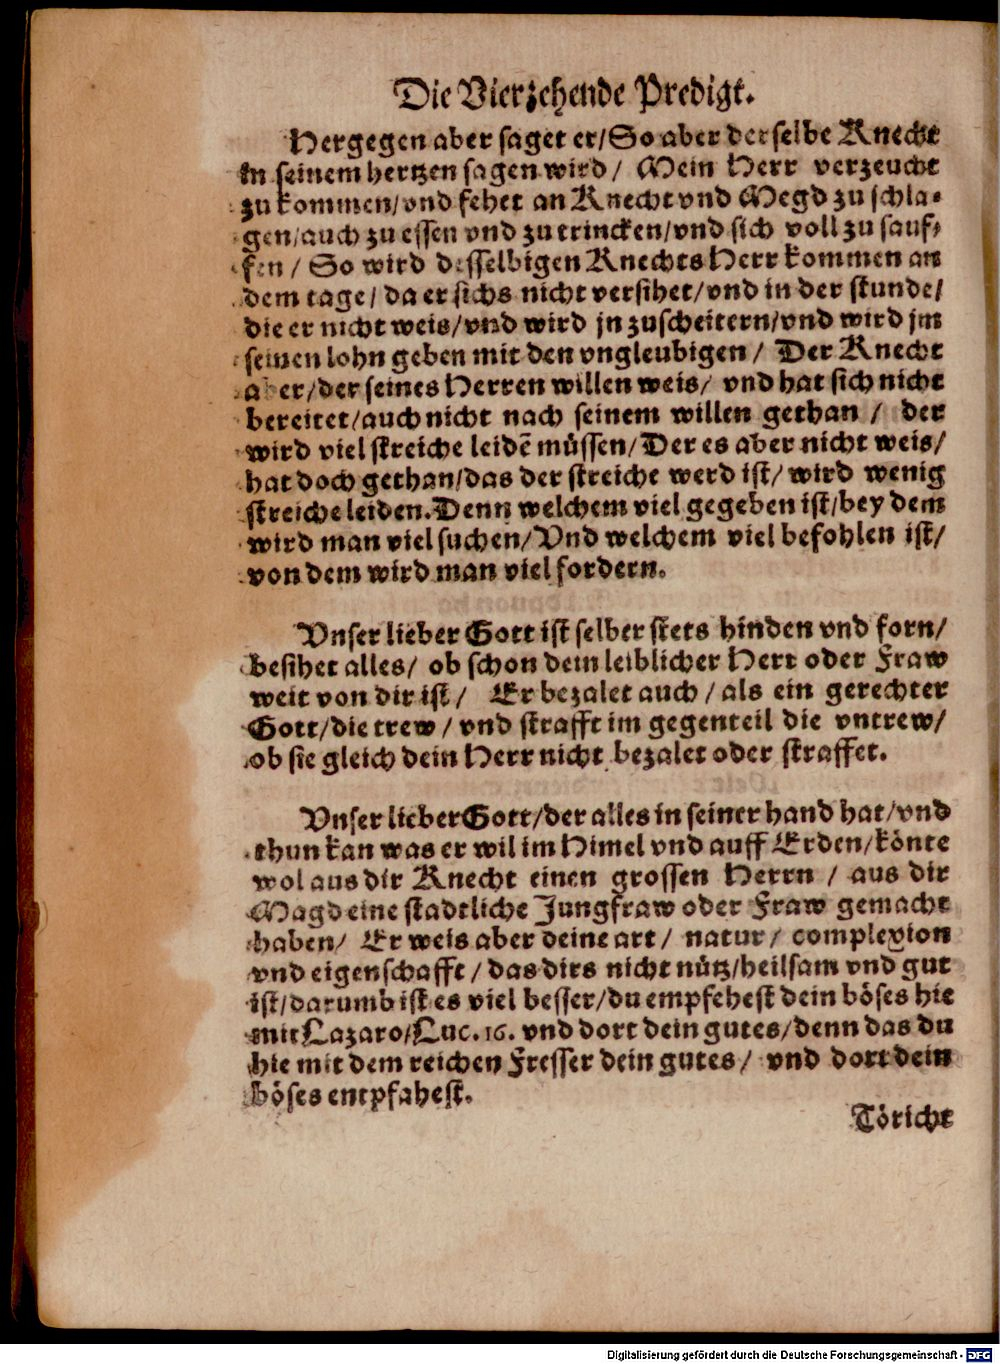 Die Vierzehende Predigt.
Hergegen aber saget er/So aber derselbe Knecht
in seinem hertzen sagen wird/ Mein Herr verzeucht
zu kommen/vnd fehet an Knecht vnd Megd zu schla-
gen/auch zu essen vnd zu trincken/vnd sich voll zu sauf-
fen / So wird desselbigen Knechts Herr kommen an
dem tage/ da er sichs nicht versihet/vnd in der stunde/
die er nicht weis/vnd wird jn zuscheitern/vnd wird jm
seinen lohn geben mit den vngleubigen / Der Knecht
aber/der seines Herren willen weis/ vnd hat sich nicht
bereitet/auch nicht nach seinem willen gethan / der
wird viel streiche leidē müssen/Der es aber nicht weis/
hat doch gethan/das der streiche werd ist/ wird wenig
streiche leiden.Denn welchem viel gegeben ist/bey dem
wird man viel suchen/Vnd welchem viel befohlen ist/
von dem wird man viel fordern.
Vnser lieber Gott ist selber stets hinden vnd forn/
besihet alles/ ob schon dein leiblicher Herr oder Fraw
weit von dir ist/ Er bezalet auch / als ein gerechter
Gott/die trew / vnd strafft im gegenteil die vntrew/
ob sie gleich dein Herr nicht bezalet oder straffet.
Vnser lieber Gott/der alles in seiner hand hat/vnd
thun kan was er wil im Himel vnd auff Erden/könte
wol aus dir Knecht einen grossen Herrn / aus dir
Magd eine stadtliche Jungfraw oder Fraw gemacht
haben/ Er weis aber deine art / natur / complexion
vnd eigenschafft / das dirs nicht nütz/heilsam vnd gut
ist/darumb ist es viel besser/du empfehest dein böses hie
mit Lazaro/Luc. 16. vnd dort dein gutes/denn das du
hie mit dem reichen Fresser dein gutes / vnd dort dein
böses entpfahest.
Töricht
Digitalisierung gefördert durch die Deutsche Forschungsgemeinschaft - DFG